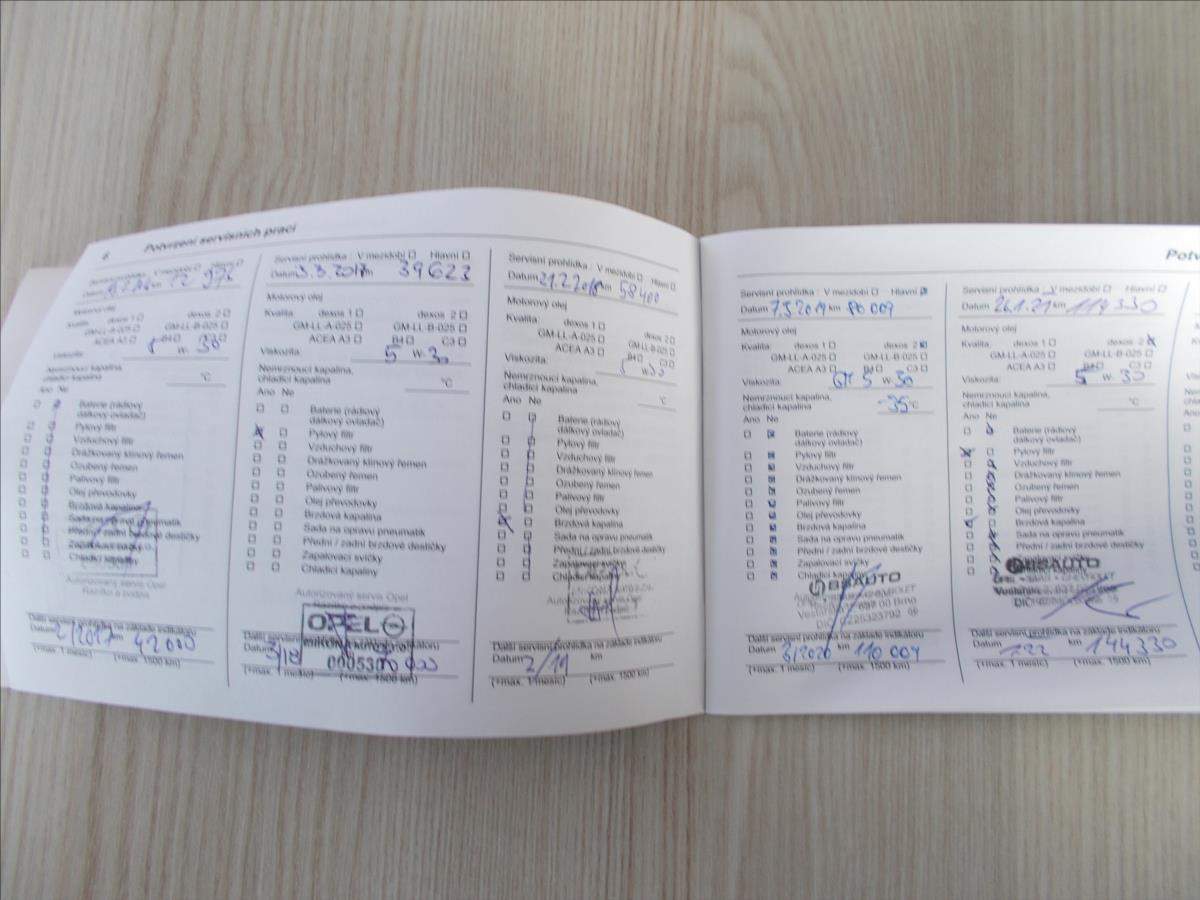 6 Potvrzení servisních prací
Servisní prohlídka : V mezidobí Hlavní
Datum km 12 973
Motorový olej
Kvalita: dexos 1 dexos 2
GM-LL-A-025 GM-LL-B-025
ACEA A3 B4 C3
Viskozita: W- 30
Nemrznoucí kapalina,
chladicí kapalina °C
Ano Ne
Baterie (rádiový
dálkový ovladač)
Pylový filtr
Vzduchový filtr
Drážkovaný klínový řemen
Ozubený řemen
Palivový filtr
Olej převodovky
Brzdová kapalina
Sada na opravu pneumatik
Přední / zadní brzdové destičky
Zapalovací svíčky
Chladicí kapaliny
Autorizovaný servis Opel
Razítko a podpis
Další servisní prohlídka na základě indikátoru
Datum 2/2017 km 42000
(+max. 1 měsíc) (+max. 1500 km)
Servisní prohlídka : V mezidobí Hlavní
Datum 3.3.2017 km 39623
Motorový olej
Kvalita: dexos 1 dexos 2
GM-LL-A-025 GM-LL-B-025
ACEA A3 B4 C3
Viskozita: 5 W- 30
Nemrznoucí kapalina,
chladicí kapalina °C
Ano Ne
Baterie (rádiový
dálkový ovladač)
Pylový filtr
Vzduchový filtr
Drážkovaný klínový řemen
Ozubený řemen
Palivový filtr
Olej převodovky
Brzdová kapalina
Sada na opravu pneumatik
Přední / zadní brzdové destičky
Zapalovací svíčky
Chladicí kapaliny
Autorizovaný servis Opel
OPEL
Datum 3/18
(+max. 1 měsíc) (+max. 1500 km)
Servisní prohlídka : V mezidobí Hlavní
Datum 21.2.2018 km 58400
Motorový olej
Kvalita: dexos 1 dexos 2
GM-LL-A-025 GM-LL-B-025
ACEA A3 B4 C3
Viskozita: W-
Nemrznoucí kapalina,
chladicí kapalina °C
Ano Ne
Baterie (rádiový
dálkový ovladač)
Pylový filtr
Vzduchový filtr
Drážkovaný klínový řemen
Ozubený řemen
Palivový filtr
Olej převodovky
Brzdová kapalina
Sada na opravu pneumatik
Přední / zadní brzdové destičky
Zapalovací svíčky
Chladicí kapaliny
Další servisní prohlídka na základě indikátoru
Datum 2/19 km
(+max. 1 měsíc) (+max. 1500 km)
Servisní prohlídka : V mezidobí Hlavní
Datum 7.5.2019 km 80 009
Motorový olej
Kvalita: dexos 1 dexos 2
GM-LL-A-025 GM-LL-B-025
ACEA A3 B4 C3
Viskozita: 5 W- 30
Nemrznoucí kapalina,
chladicí kapalina -35 °C
Ano Ne
Baterie (rádiový
dálkový ovladač)
Pylový filtr
Vzduchový filtr
Drážkovaný klínový řemen
Ozubený řemen
Palivový filtr
Olej převodovky
Brzdová kapalina
Sada na opravu pneumatik
Přední / zadní brzdové destičky
Zapalovací svíčky
Chladicí kapaliny
BSAUTO
Další servisní prohlídka na základě indikátoru
Datum km 110 009
(+max. 1 měsíc) (+max. 1500 km)
Potv
Servisní prohlídka : V mezidobí Hlavní
Datum 26.1.21 km 114330
Motorový olej
Kvalita: dexos 1 dexos 2
GM-LL-A-025 GM-LL-B-025
ACEA A3 B4 C3
Viskozita: 5 W- 30
Nemrznoucí kapalina,
chladicí kapalina °C
Ano Ne
Baterie (rádiový
dálkový ovladač)
Pylový filtr
Vzduchový filtr
Drážkovaný klínový řemen
Ozubený řemen
Palivový filtr
Olej převodovky
Brzdová kapalina
Sada na opravu pneumatik
Přední / zadní brzdové destičky
Zapalovací svíčky
BSAUTO
Další servisní prohlídka na základě indikátoru
Datum 1.22 km 144330
(+max. 1 měsíc) (+max. 1500 km)